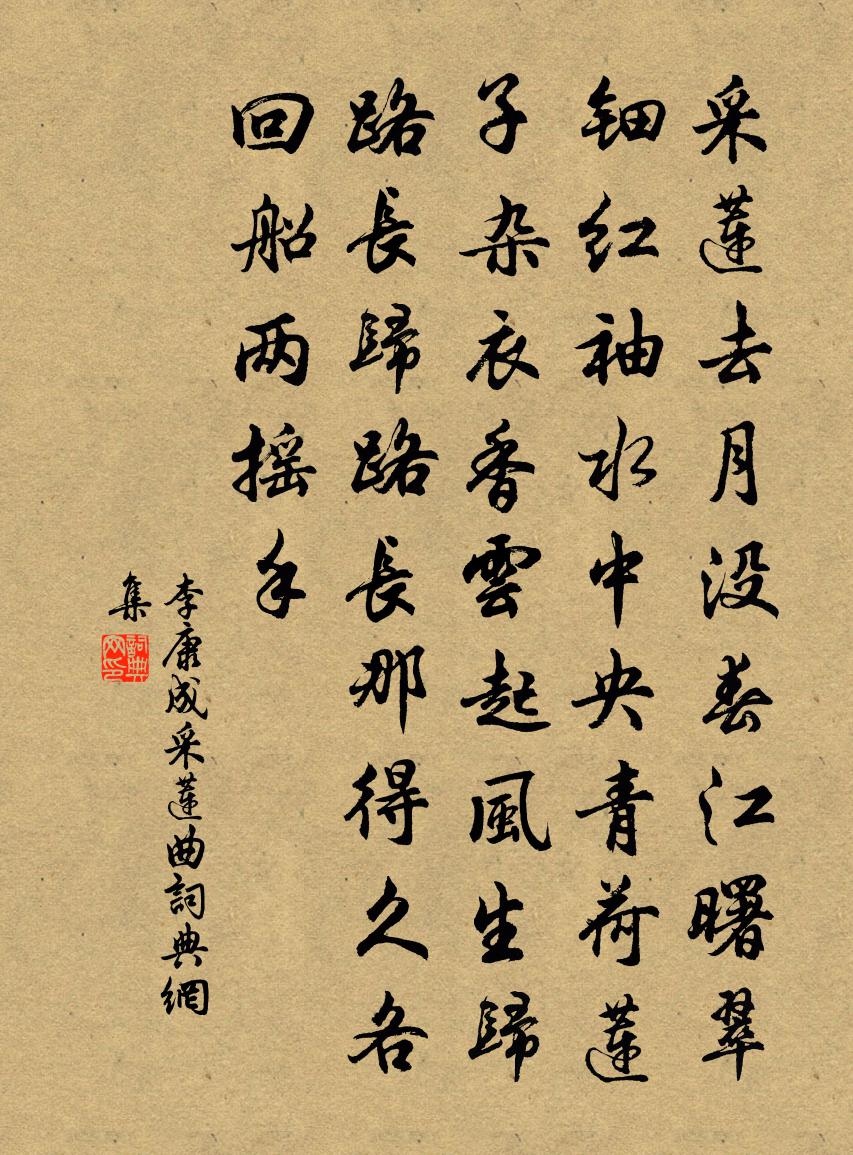 采蓮去月没春江曙翠
钿红袖水中央青荷蓮
子杂衣香雲起風生歸
路長歸路長那得久各
回船两摇手
李康成采蓮曲詞典網
集
詞典网印